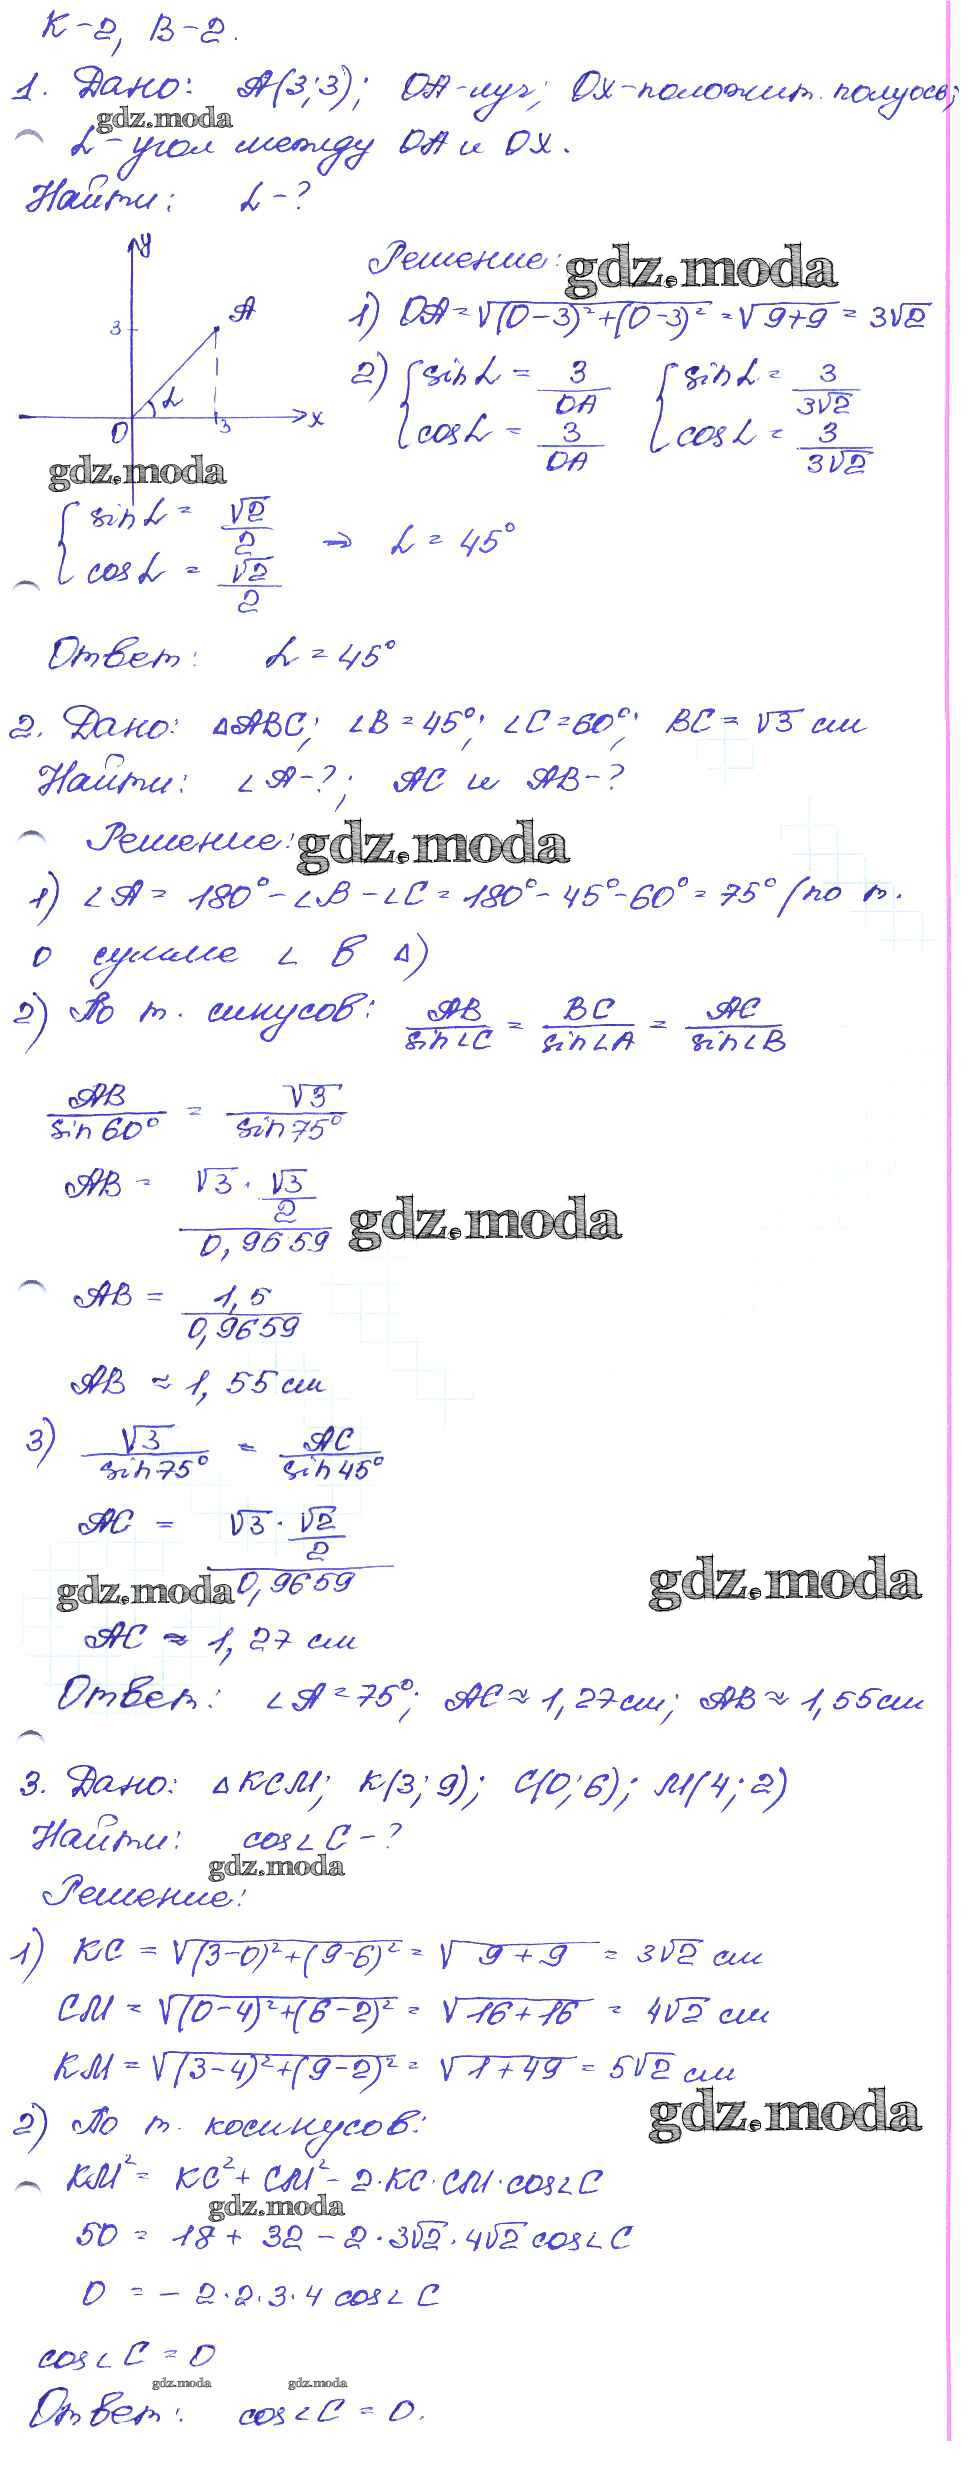 К-2, В-2.
1. Дано: A(3;3); OA-луч; OX-положит. полуось;
gdz.moda
α-угол между OA и OX.
Найти: α-?
y
Решение:
gdz.moda
A
3
1) OA=√((0-3)²+(0-3)²)=√(9+9)=3√2
2) { sinα = 3/OA { sinα = 3/(3√2)
cosα = 3/OA cosα = 3/(3√2)
α
O 3 x
gdz.moda
{ sinα = √2/2
cosα = √2/2 ⇒ α = 45°
Ответ: α = 45°
2. Дано: △ABC; ∠B=45°; ∠C=60°; BC=√3 см
Найти: ∠A-?; AC и AB-?
Решение:
gdz.moda
1) ∠A= 180°-∠B-∠C=180°-45°-60°=75° (по т.
о сумме ∠ в △)
2) По т. синусов: AB/sin∠C = BC/sin∠A = AC/sin∠B
AB/sin60° = √3/sin75°
AB = (√3·√3/2)/0,9659
gdz.moda
AB = 1,5/0,9659
AB ≈ 1,55 см
3) √3/sin75° = AC/sin45°
AC = (√3·√2/2)/0,9659
gdz.moda
gdz.moda
AC ≈ 1,27 см
Ответ: ∠A=75°; AC≈1,27см; AB≈1,55см
3. Дано: △KCM; K(3;9); C(0;6); M(4;2)
Найти: cos∠C-?
gdz.moda
Решение:
1) KC = √((3-0)²+(9-6)²)= √(9+9) = 3√2 см
CM = √((0-4)²+(6-2)²)= √(16+16) = 4√2 см
KM = √((3-4)²+(9-2)²)= √(1+49) = 5√2 см
gdz.moda
2) По т. косинусов:
KM²= KC²+CM²-2·KC·CM·cos∠C
gdz.moda
50 = 18 + 32 - 2·3√2·4√2 cos∠C
0 = -2·2·3·4 cos∠C
cos∠C = 0
gdz.moda gdz.moda
Ответ: cos∠C = 0.